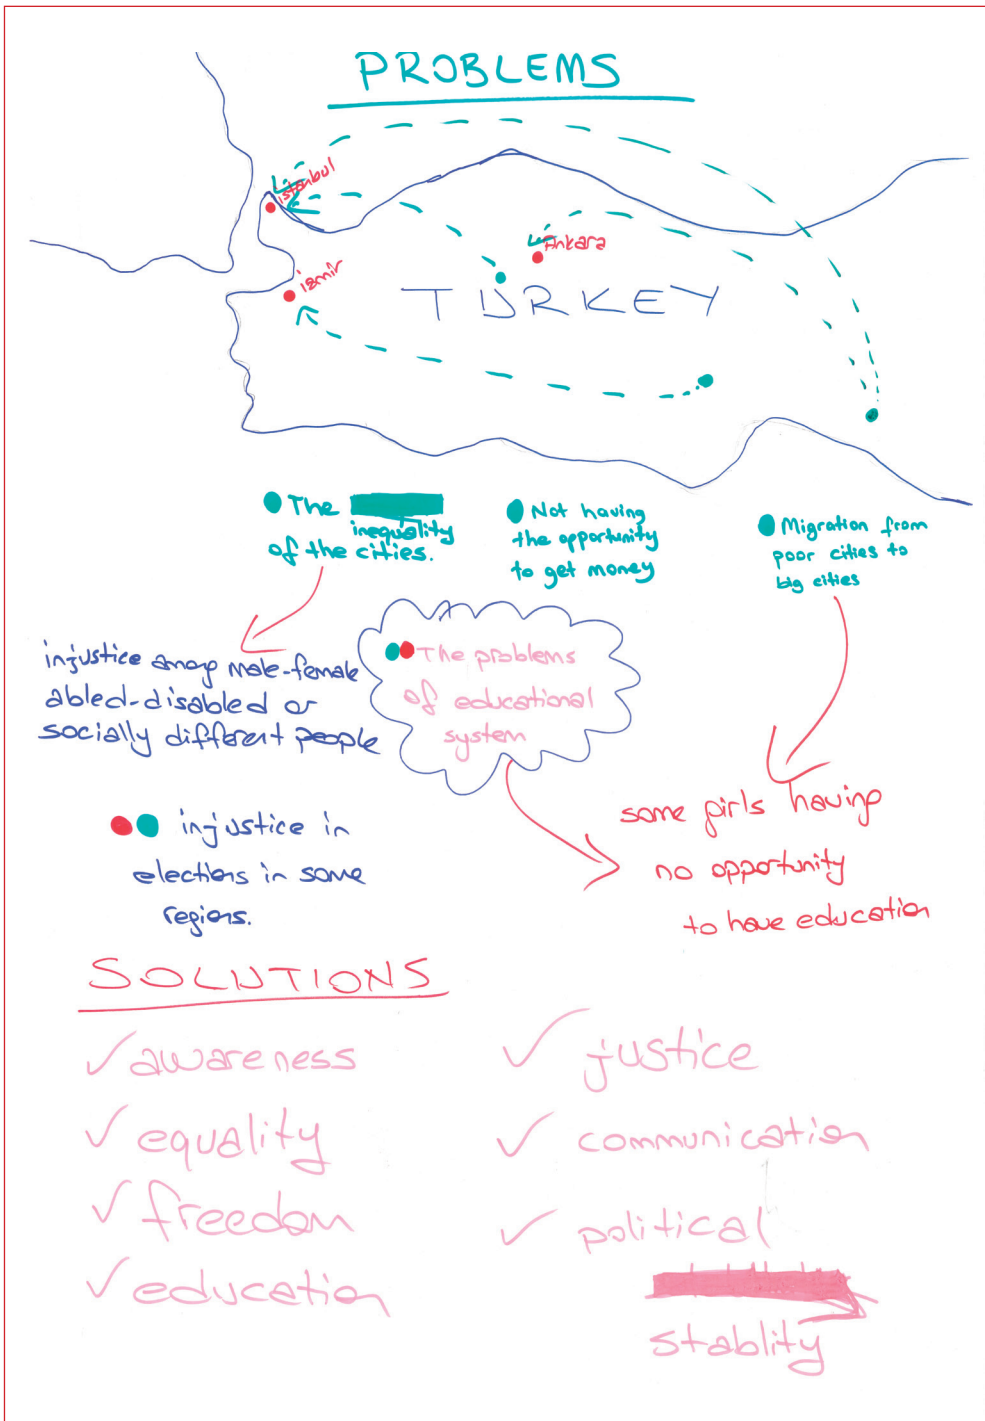 PROBLEMS
istanbul
Ankara
izmir
TURKEY
The
inequality
of the cities.
Not having
the opportunity
to get money
Migration from
poor cities to
big cities
injustice among male-female
abled-disabled or
socially different people
The problems
of educational
system
injustice in
elections in some
regions.
some girls having
no opportunity
to have education
SOLUTIONS
✓ awareness
✓ equality
✓ freedom
✓ education
✓ justice
✓ communication
✓ political
stablity